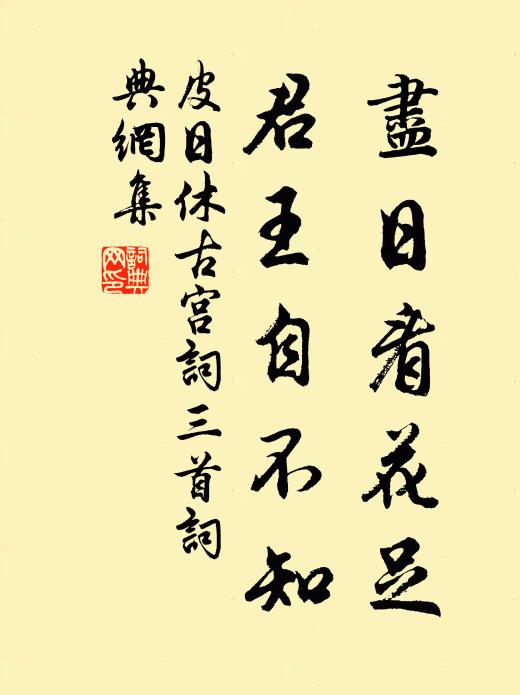 盡日看花足
君王自不知
皮日休古宮詞三首詞
典網集
詞典
网印